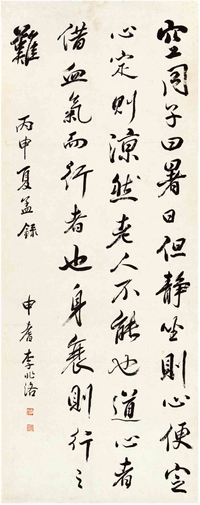 空同子曰暑日但静坐則心便定
心定則涼然老人不能也道心者
借血氣而行者也身衰則行之
難
丙申夏孟錄
申耆李兆洛